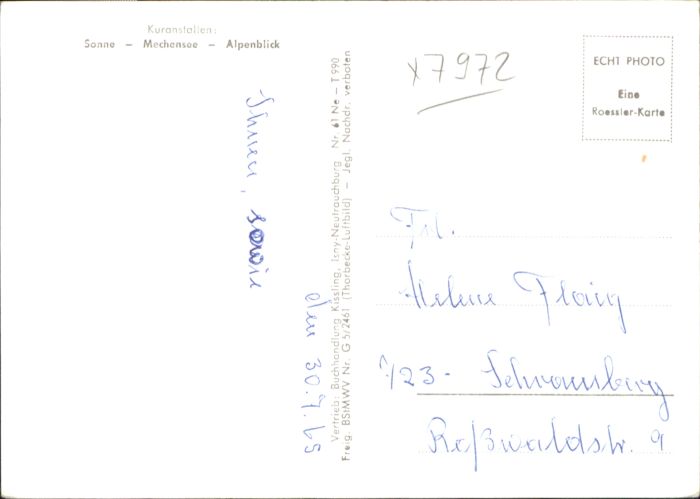 Kuranstalten:
Sonne – Mechensee – Alpenblick
Ihnen, sowie
den 30.9.65
Vertrieb: Buchhandlung Kissling, Isny-Neutrauchburg Nr. 61 Ne – T 990
Freig. BStMWV Nr. G 5/2461 (Thorbecke-Luftbild) – Jegl. Nachdr. verboten
x7972
ECHT PHOTO
Eine
Roessler-Karte
Frl.
Helene Flaig
723 - Schramberg
Roßwaldstr. 9